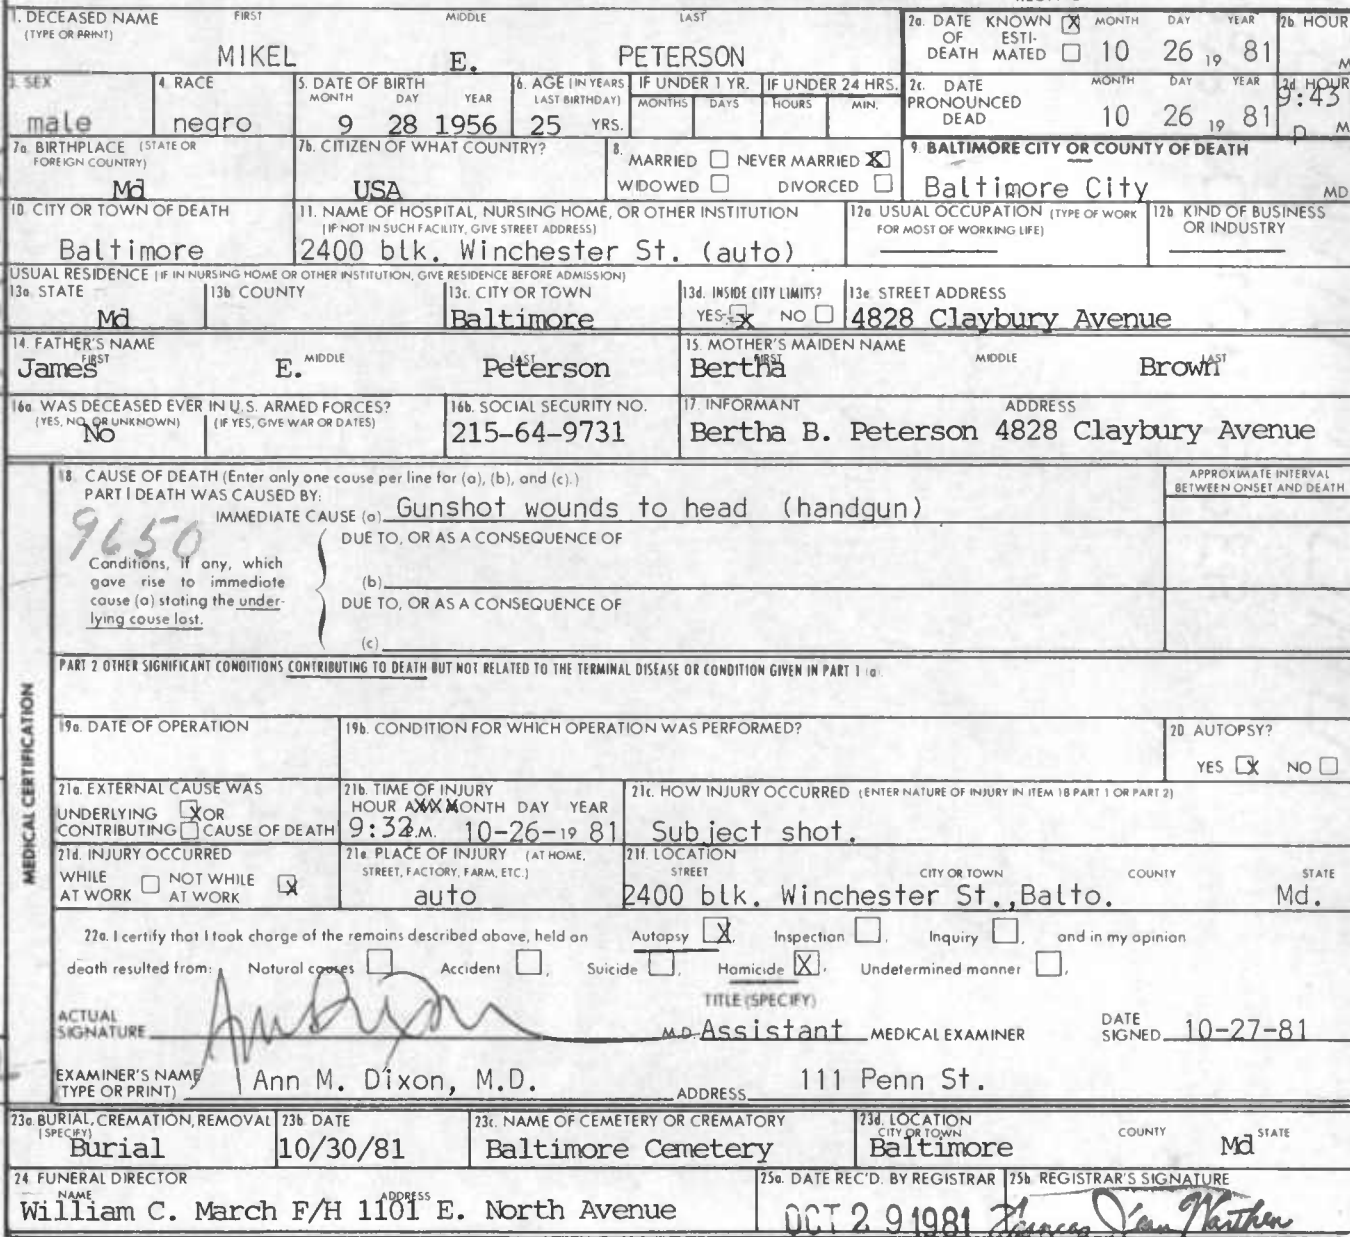 1. DECEASED NAME FIRST MIDDLE LAST
(TYPE OR PRINT)
MIKEL E. PETERSON
2a. DATE OF DEATH KNOWN [X] ESTIMATED [ ] MONTH DAY YEAR
10 26 19 81
2b. HOUR
M
3. SEX
male
4. RACE
negro
5. DATE OF BIRTH
MONTH DAY YEAR
9 28 1956
6. AGE (IN YEARS LAST BIRTHDAY)
25 YRS.
IF UNDER 1 YR.
MONTHS DAYS
IF UNDER 24 HRS.
HOURS MIN.
2c. DATE PRONOUNCED DEAD MONTH DAY YEAR
10 26 19 81
2d. HOUR
9:43
p M
7a. BIRTHPLACE (STATE OR FOREIGN COUNTRY)
Md
7b. CITIZEN OF WHAT COUNTRY?
USA
8. MARRIED [ ] NEVER MARRIED [X]
WIDOWED [ ] DIVORCED [ ]
9. BALTIMORE CITY OR COUNTY OF DEATH
Baltimore City MD
10. CITY OR TOWN OF DEATH
Baltimore
11. NAME OF HOSPITAL, NURSING HOME, OR OTHER INSTITUTION
(IF NOT IN SUCH FACILITY, GIVE STREET ADDRESS)
2400 blk. Winchester St. (auto)
12a. USUAL OCCUPATION (TYPE OF WORK FOR MOST OF WORKING LIFE)
12b. KIND OF BUSINESS OR INDUSTRY
USUAL RESIDENCE (IF IN NURSING HOME OR OTHER INSTITUTION, GIVE RESIDENCE BEFORE ADMISSION)
13a. STATE
Md
13b. COUNTY
13c. CITY OR TOWN
Baltimore
13d. INSIDE CITY LIMITS?
YES [X] NO [ ]
13e. STREET ADDRESS
4828 Claybury Avenue
14. FATHER'S NAME
FIRST MIDDLE LAST
James E. Peterson
15. MOTHER'S MAIDEN NAME
FIRST MIDDLE LAST
Bertha Brown
16a. WAS DECEASED EVER IN U.S. ARMED FORCES?
(YES, NO, OR UNKNOWN) (IF YES, GIVE WAR OR DATES)
No
16b. SOCIAL SECURITY NO.
215-64-9731
17. INFORMANT ADDRESS
Bertha B. Peterson 4828 Claybury Avenue
MEDICAL CERTIFICATION
18. CAUSE OF DEATH (Enter only one cause per line for (a), (b), and (c).)
PART I DEATH WAS CAUSED BY:
IMMEDIATE CAUSE (a) Gunshot wounds to head (handgun)
APPROXIMATE INTERVAL BETWEEN ONSET AND DEATH
9650
Conditions, if any, which gave rise to immediate cause (a) stating the underlying cause last.
DUE TO, OR AS A CONSEQUENCE OF
(b)
DUE TO, OR AS A CONSEQUENCE OF
(c)
PART 2 OTHER SIGNIFICANT CONDITIONS CONTRIBUTING TO DEATH BUT NOT RELATED TO THE TERMINAL DISEASE OR CONDITION GIVEN IN PART 1 (a)
19a. DATE OF OPERATION
19b. CONDITION FOR WHICH OPERATION WAS PERFORMED?
20. AUTOPSY?
YES [X] NO [ ]
21a. EXTERNAL CAUSE WAS
UNDERLYING [X] OR
CONTRIBUTING [ ] CAUSE OF DEATH
21b. TIME OF INJURY
HOUR MONTH DAY YEAR
9:32 P.M. 10-26-19 81
21c. HOW INJURY OCCURRED (ENTER NATURE OF INJURY IN ITEM 18 PART 1 OR PART 2)
Subject shot.
21d. INJURY OCCURRED
WHILE AT WORK [ ] NOT WHILE AT WORK [X]
21e. PLACE OF INJURY (AT HOME, STREET, FACTORY, FARM, ETC.)
auto
21f. LOCATION
STREET CITY OR TOWN COUNTY STATE
2400 blk. Winchester St.,Balto. Md.
22a. I certify that I took charge of the remains described above, held an Autopsy [X], Inspection [ ], Inquiry [ ], and in my opinion
death resulted from: Natural causes [ ] Accident [ ], Suicide [ ], Homicide [X], Undetermined manner [ ],
ACTUAL SIGNATURE Ann Dixon M.D. TITLE (SPECIFY) Assistant MEDICAL EXAMINER DATE SIGNED 10-27-81
EXAMINER'S NAME (TYPE OR PRINT) Ann M. Dixon, M.D. ADDRESS 111 Penn St.
23a. BURIAL, CREMATION, REMOVAL (SPECIFY)
Burial
23b. DATE
10/30/81
23c. NAME OF CEMETERY OR CREMATORY
Baltimore Cemetery
23d. LOCATION
CITY OR TOWN COUNTY STATE
Baltimore Md
24. FUNERAL DIRECTOR
NAME ADDRESS
William C. March F/H 1101 E. North Avenue
25a. DATE REC'D. BY REGISTRAR
OCT 29 1981
25b. REGISTRAR'S SIGNATURE
Frances Jean Warthen